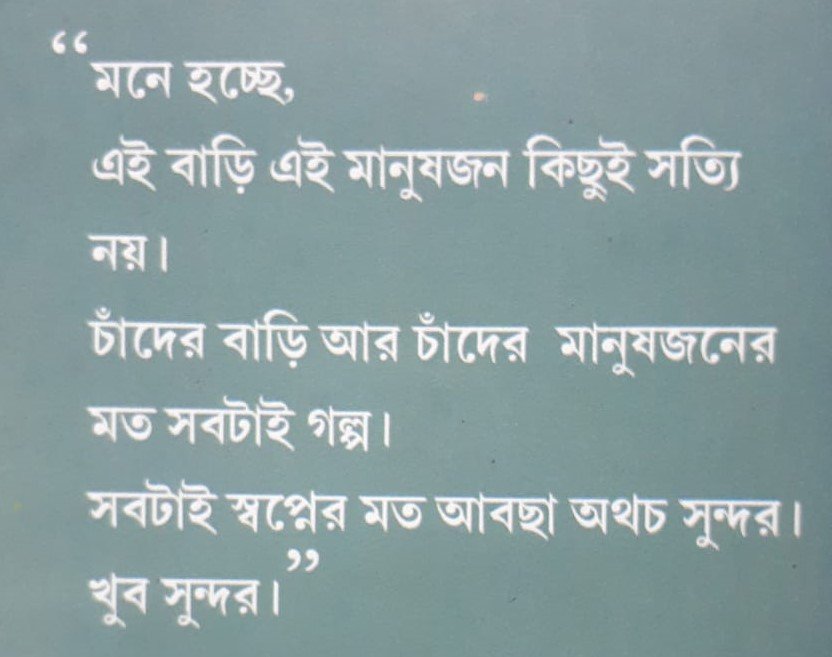 “মনে হচ্ছে,
এই বাড়ি এই মানুষজন কিছুই সত্যি
নয়।
চাঁদের বাড়ি আর চাঁদের মানুষজনের
মত সবটাই গল্প।
সবটাই স্বপ্নের মত আবছা অথচ সুন্দর।
খুব সুন্দর।”